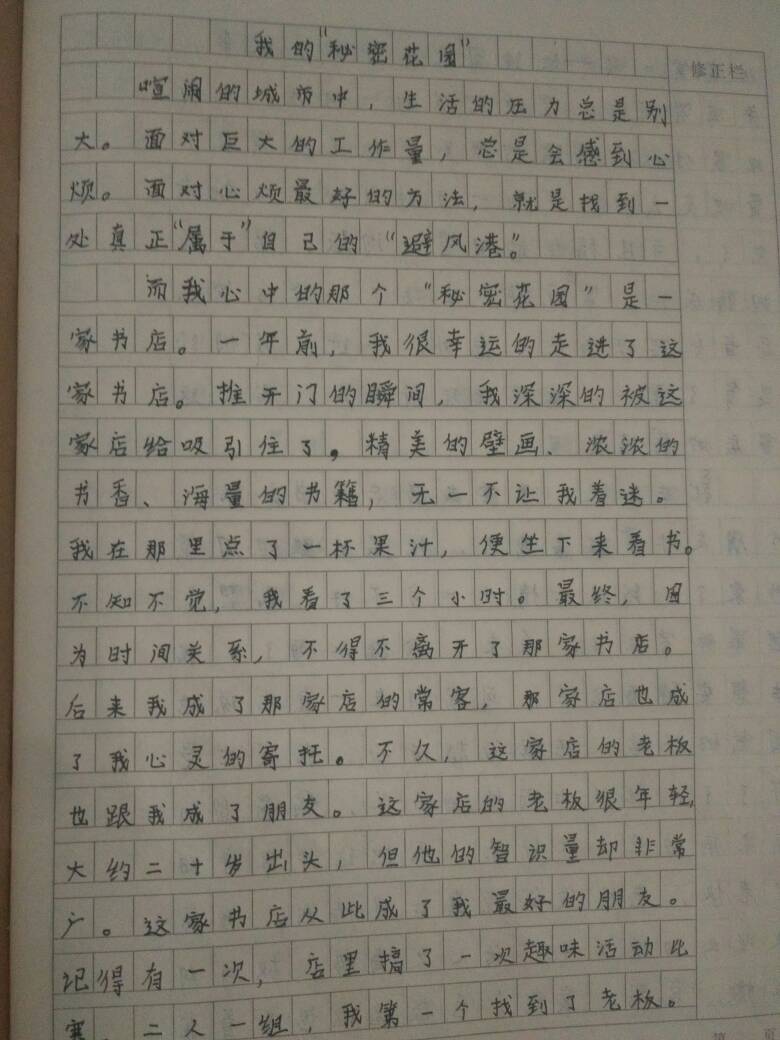 我的"秘密花园"
修正栏
喧闹的城市中，生活的压力总是别
大。面对巨大的工作量，总是会感到心
烦。面对心烦最好的方法，就是找到一
处真正"属于"自己的"避风港"。
而我心中的那个"秘密花园"是一
家书店。一年前，我很幸运的走进了这
家书店。推开门的瞬间，我深深的被这
家店给吸引住了，精美的壁画、浓浓的
书香、海量的书籍，无一不让我着迷。
我在那里点了一杯果汁，便坐下来看书。
不知不觉，我看了三个小时。最终，因
为时间关系，不得不离开了那家书店。
后来我成了那家店的常客，那家店也成
了我心灵的寄托。不久，这家店的老板
也跟我成了朋友。这家店的老板很年轻，
大约二十岁出头，但他的智识量却非常
广。这家书店从此成了我最好的朋友。
记得有一次，店里搞了一次趣味活动比
赛，二人一组，我第一个找到了老板。